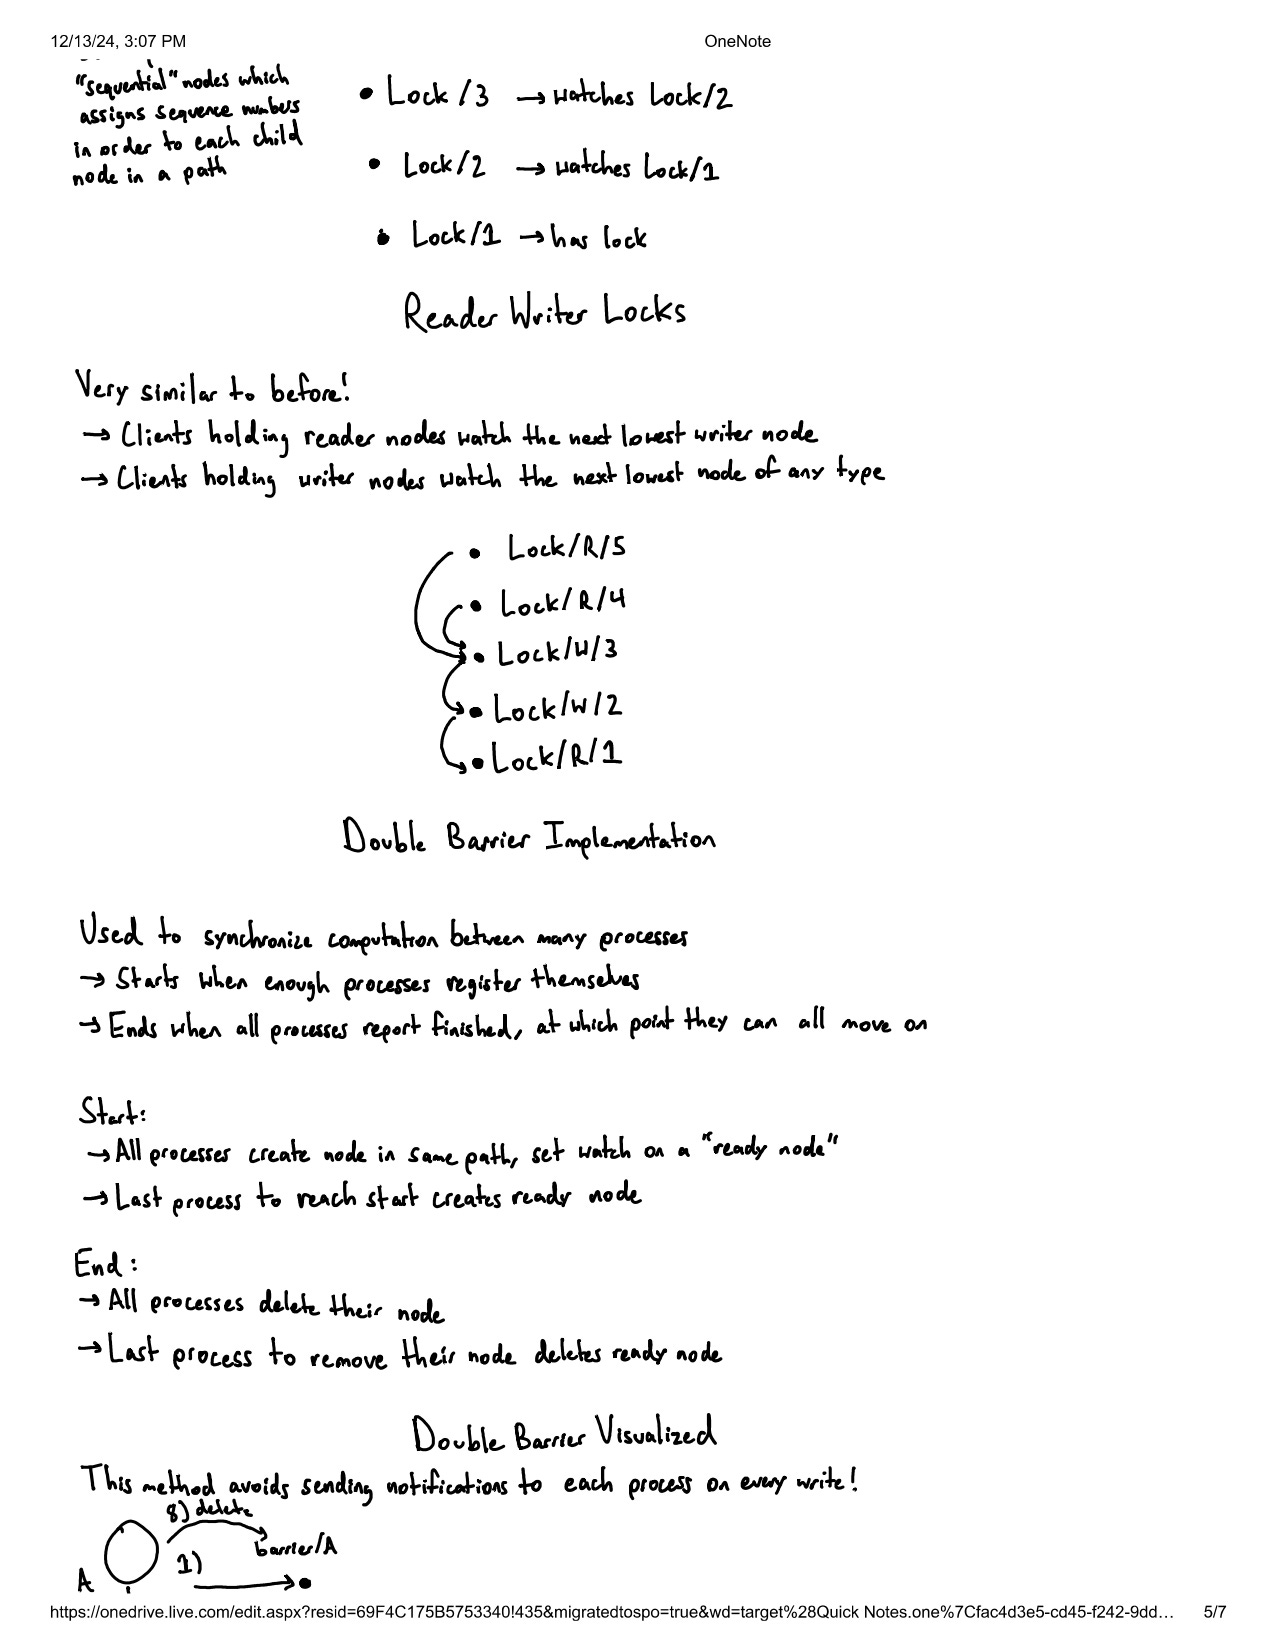 12/13/24, 3:07 PM
OneNote
"sequential" nodes which
assigns sequence numbers
in order to each child
node in a path
• Lock/3 → watches Lock/2
• Lock/2 → watches Lock/1
• Lock/1 → has lock
Reader Writer Locks
Very similar to before!
→ Clients holding reader nodes watch the next lowest writer node
→ Clients holding writer nodes watch the next lowest node of any type
• Lock/R/5
• Lock/R/4
• Lock/W/3
• Lock/W/2
• Lock/R/1
Double Barrier Implementation
Used to synchronize computation between many processes
→ Starts when enough processes register themselves
→ Ends when all processes report finished, at which point they can all move on
Start:
→ All processes create node in same path, set watch on a "ready node"
→ Last process to reach start creates ready node
End:
→ All processes delete their node
→ Last process to remove their node deletes ready node
Double Barrier Visualized
This method avoids sending notifications to each process on every write!
8) delete
barrier/A
1)
A
https://onedrive.live.com/edit.aspx?resid=69F4C175B5753340!435&migratedtospo=true&wd=target%28Quick Notes.one%7Cfac4d3e5-cd45-f242-9dd…
5/7